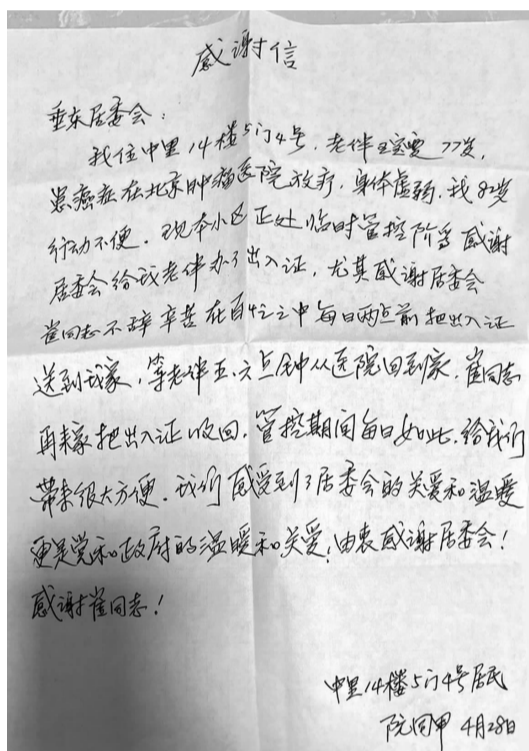 感谢信
垂东居委会：
我住中里14楼5门4号，老伴77岁，
患癌症在北京肿瘤医院放疗，身体虚弱，我82岁
行动不便。现本小区正处临时管控阶段感谢
居委会给我老伴办了出入证，尤其感谢居委会
崔同志不辞辛苦在百忙之中每日两点前把出入证
送到我家，等老伴五、六点钟从医院回到家，崔同志
再来家把出入证收回，管控期间每日如此，给我们
带来很大方便，我们感受到了居委会的关爱和温暖
更是党和政府的温暖和关爱，由衷感谢居委会！
感谢崔同志！
中里14楼5门4号居民
4月28日